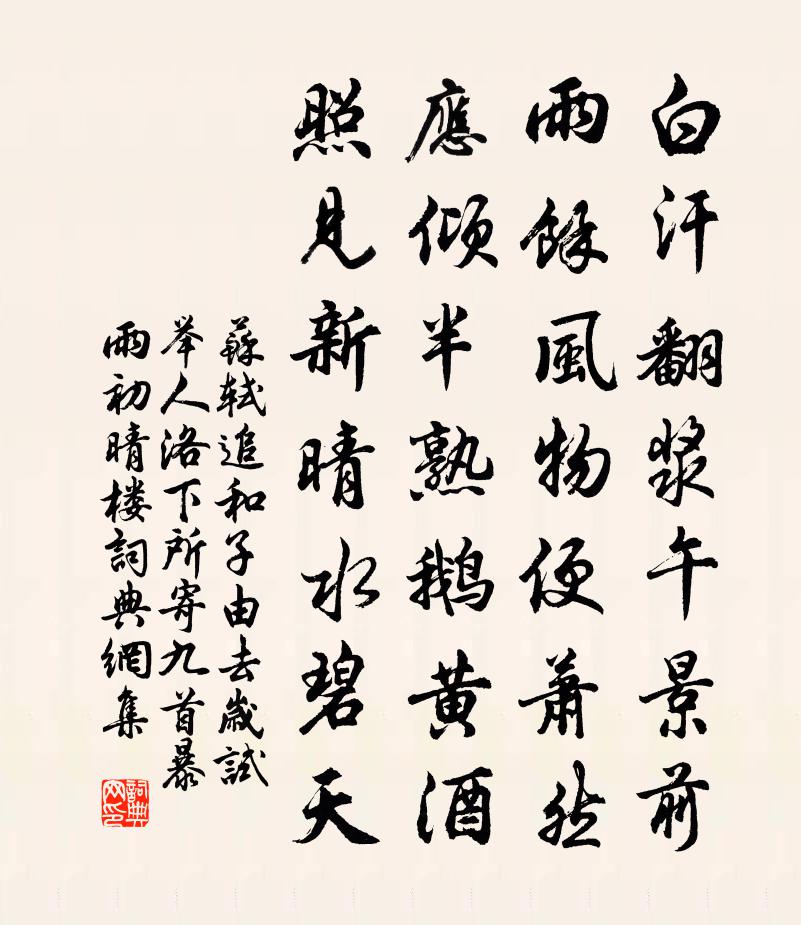 白汗翻漿午景前
雨餘風物便蕭然
應傾半熟鹅黄酒
照見新晴水碧天
蘇軾追和子由去歲試
举人洛下所寄九首暴
雨初晴楼詞典網集
詞典网印